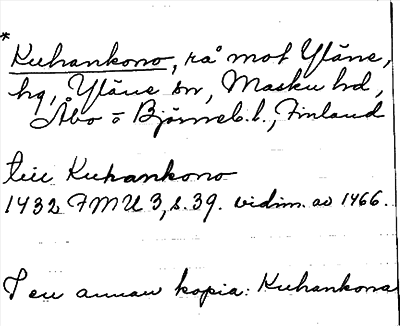 *
Kuhankono, rå mot Yläne,
hg, Yläne sn, Masku hd,
Åbo o Björneb. l., Finland
till Kuhankono
1432 FMU 3, s. 39. vidim. av 1466.
I en annan kopia: Kuhankona